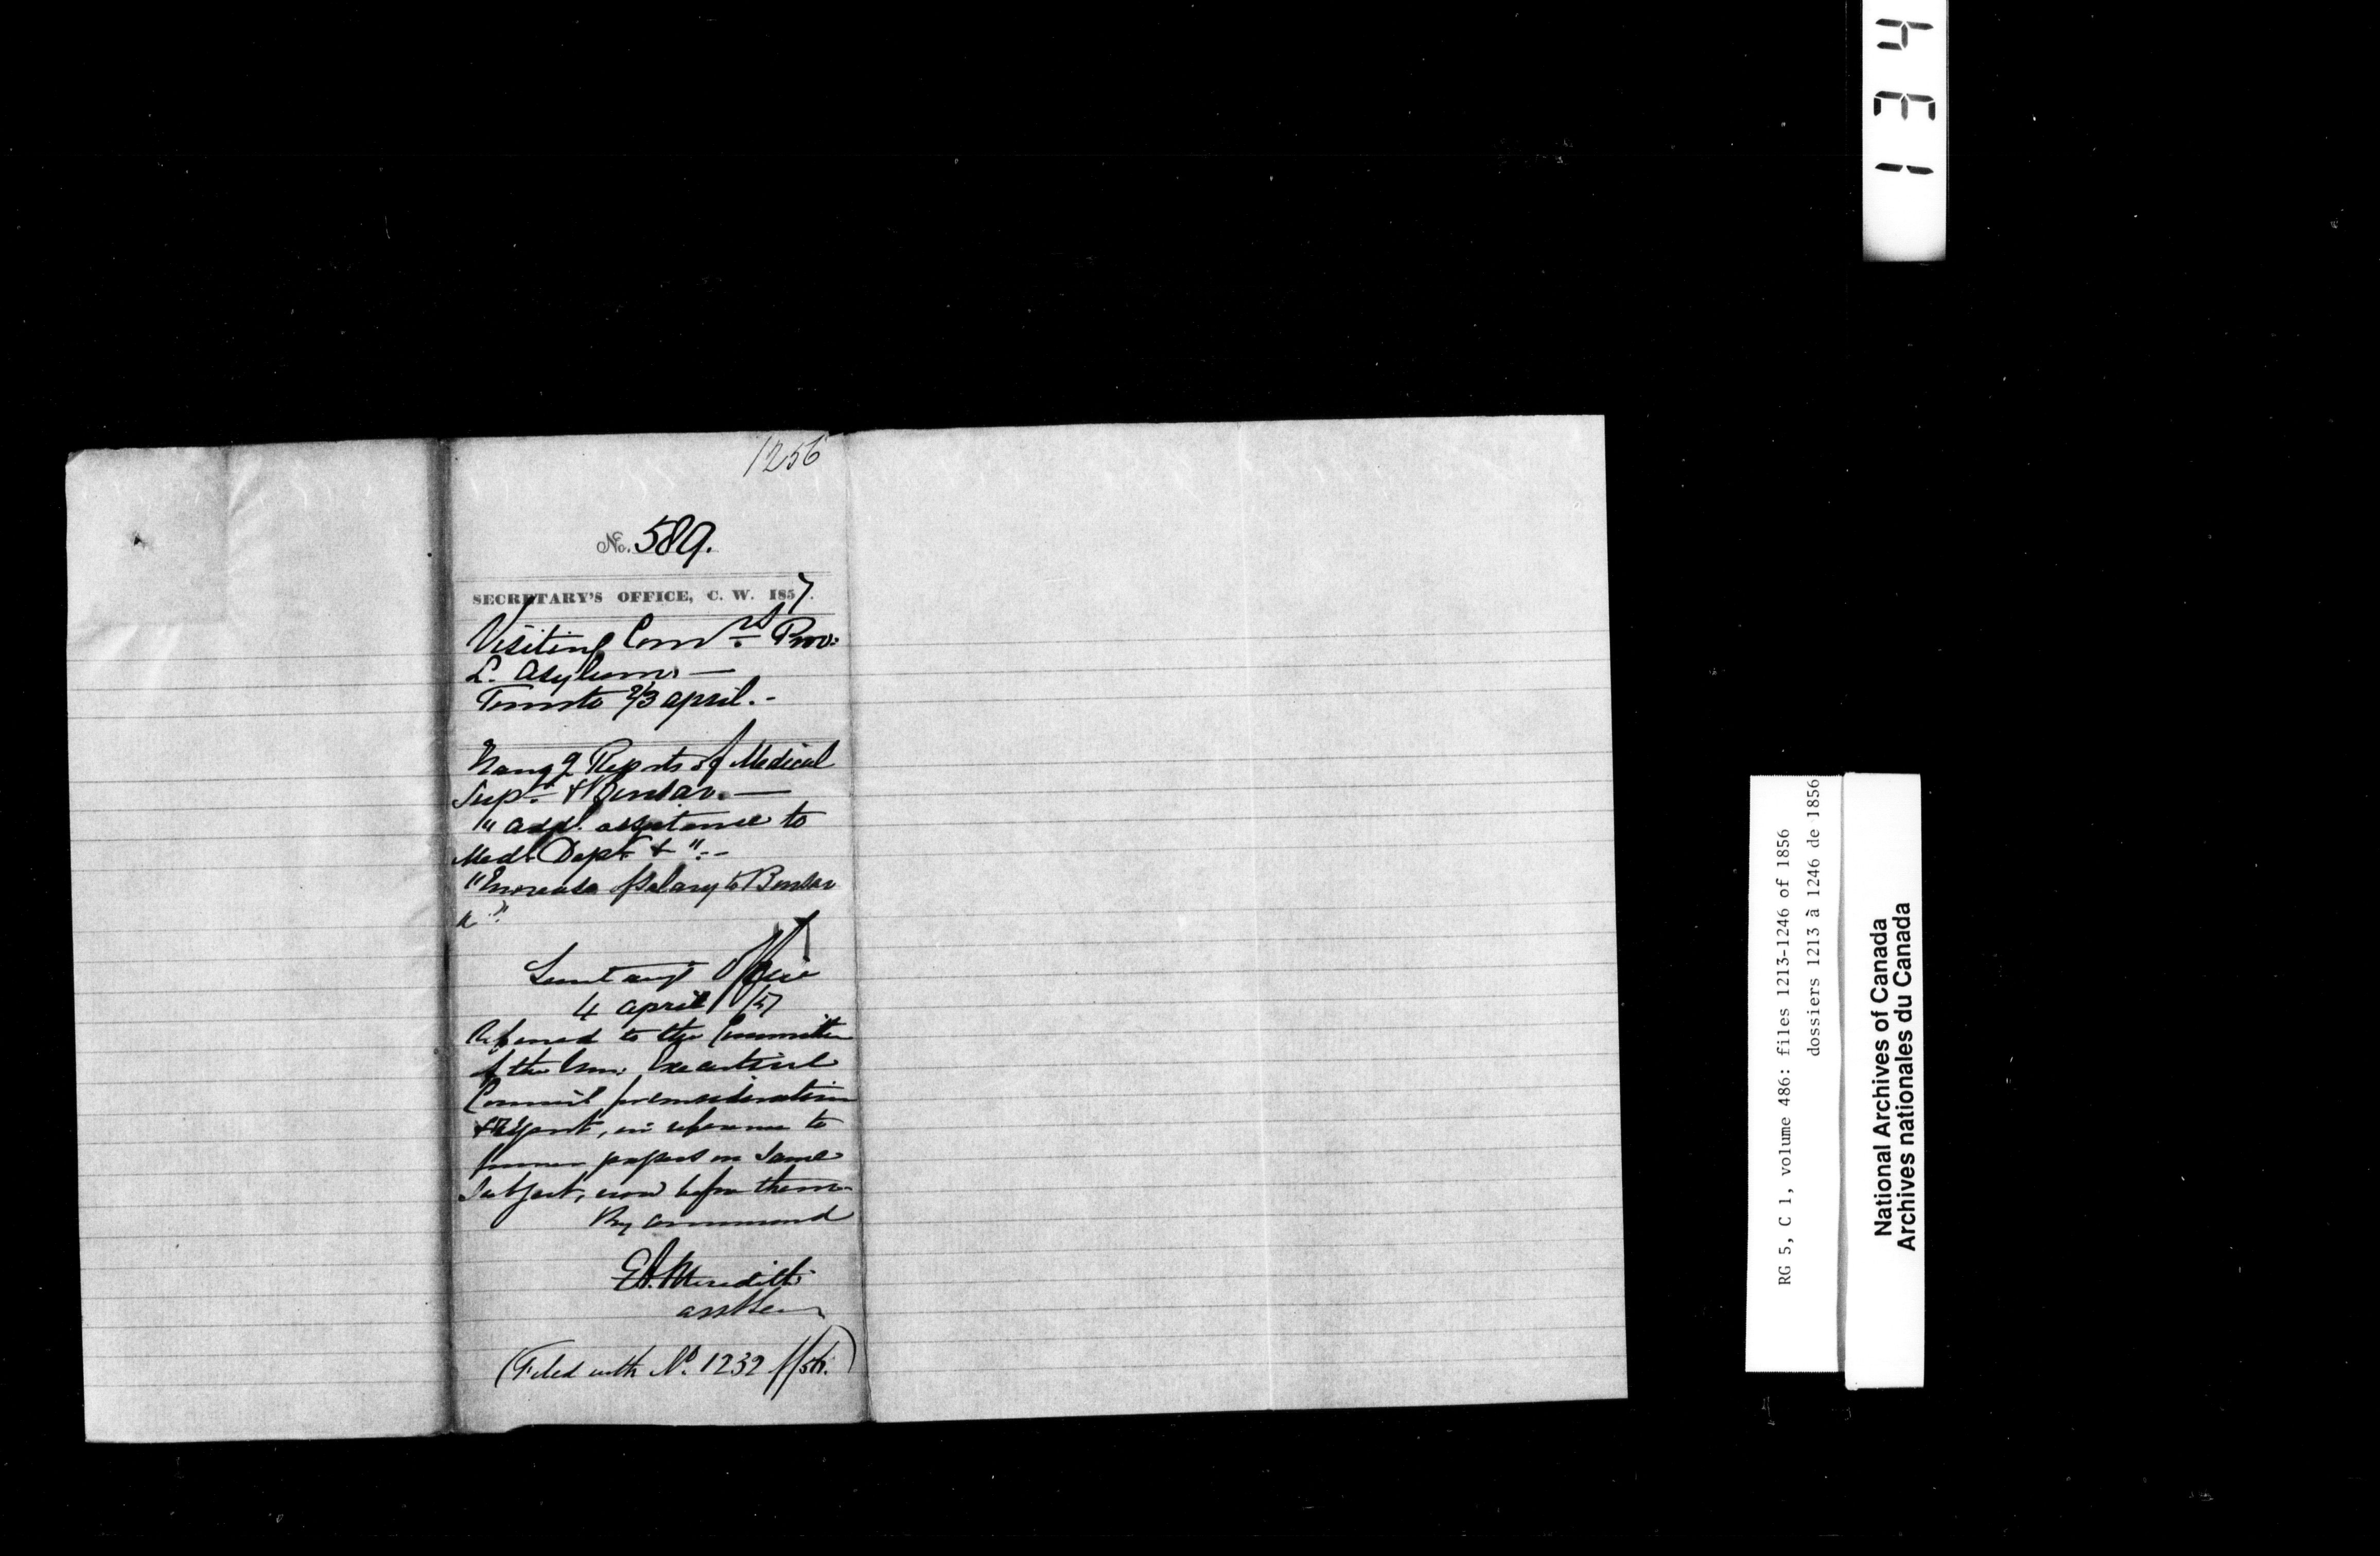 1256
No. 589.
SECRETARY'S OFFICE, C. W. 1857.
Visiting Comrs. Prov:
L. Asylum. —
Toronto 2/3 April. -
Reports of Medical
Supt. & Bursar. —
" addl. assistance to
Medl. Dept. & ". -
"Increase Salary to Bursar
Secretary's Office
4 April /57
Referred to the Committee
of the Hon. Executive
Council for consideration
& Report, in reference to
former papers on same
subject, now before them -
By command
E. A. Meredith
Asst Sec
(Filed with No. 1232 //56.)
1 3 4
RG 5, C 1, volume 486: files 1213-1246 of 1856
dossiers 1213 à 1246 de 1856
National Archives of Canada
Archives nationales du Canada